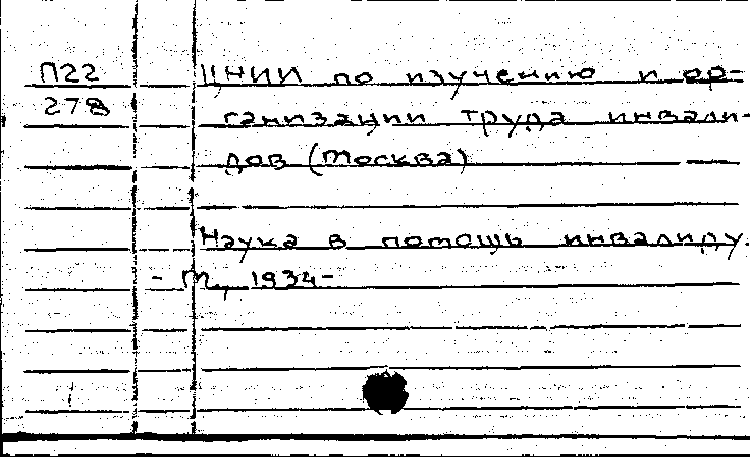 П22 ЦНИИ по изучению и ор-
278 ганизации труда инвали-
дов (Москва)
Наука в помощь инвалиду.
- М., 1934-